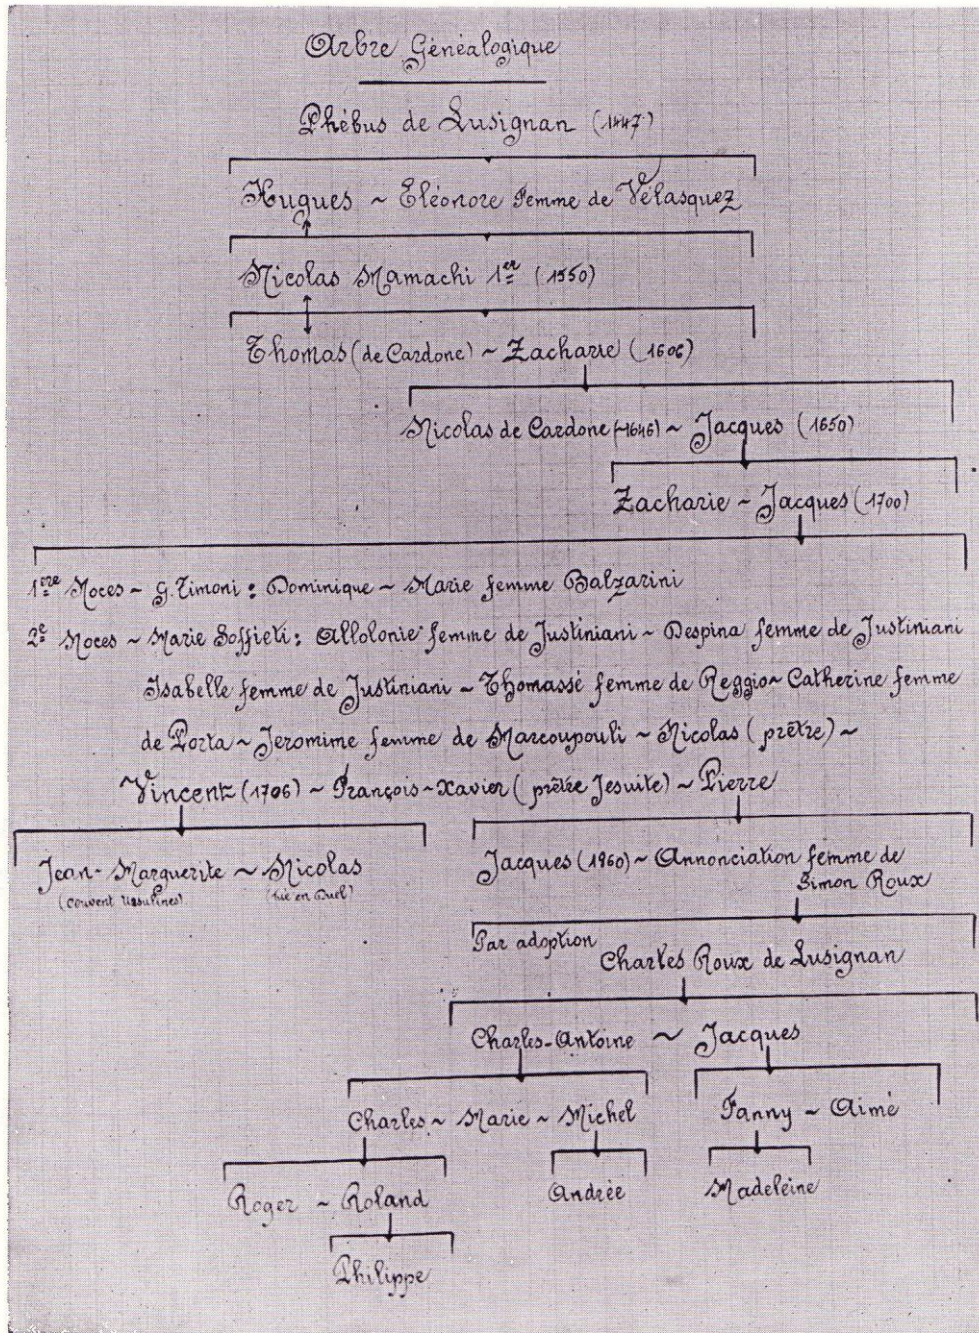 Arbre Généalogique
Phébus de Lusignan (1447)
Hugues ~ Eléonore Femme de Vélasquez
Nicolas Mamachi 1er (1550)
Thomas (de Cardone) ~ Zacharie (1606)
Nicolas de Cardone (1646) ~ Jacques (1650)
Zacharie ~ Jacques (1700)
1ere Noces ~ G. Timoni : Dominique ~ Marie femme Balzarini
2e Noces ~ Marie Soffieti : Allolonie femme de Justiniani ~ Despina femme de Justiniani
Isabelle femme de Justiniani ~ Thomassé femme de Reggio ~ Catherine femme
de Porta ~ Jeromime femme de Marcoupouli ~ Nicolas (prêtre) ~
Vincent (1706) ~ François-Xavier (prêtre Jesuite) ~ Pierre
Jean-Marguerite ~ Nicolas
(couvent Ursulines) (tué en Duel)
Jacques (1860) ~ Annonciation femme de
Simon Roux
Par adoption
Charles Roux de Lusignan
Charles-Antoine ~ Jacques
Charles ~ Marie ~ Michel Fanny ~ Aimé
Roger ~ Roland Andrée Madeleine
Philippe